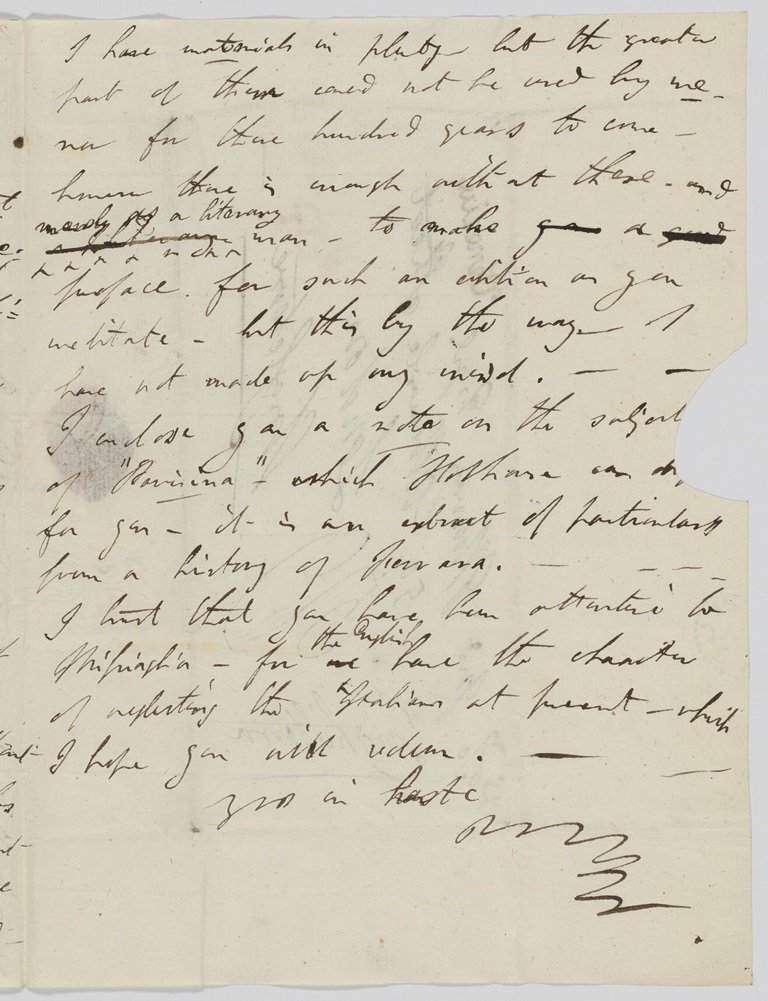 I have materials in plenty but the greater
part of them could not be used by me -
nor for three hundred years to come -
however there is enough without these - and
merely as a literary
man - to make a
preface for such an edition as you
meditate - but this by the way - I
have not made up my mind. — —
I enclose you a note on the subject
of "Parisina" - which Hobhouse can
for you - it is an extract of particulars
from a history of Ferrara. — — —
I trust that you have been attentive to
the English
Missiaglia - for we have the character
of neglecting the Italians at present - which
I hope you will redeem. — —
yrs in haste